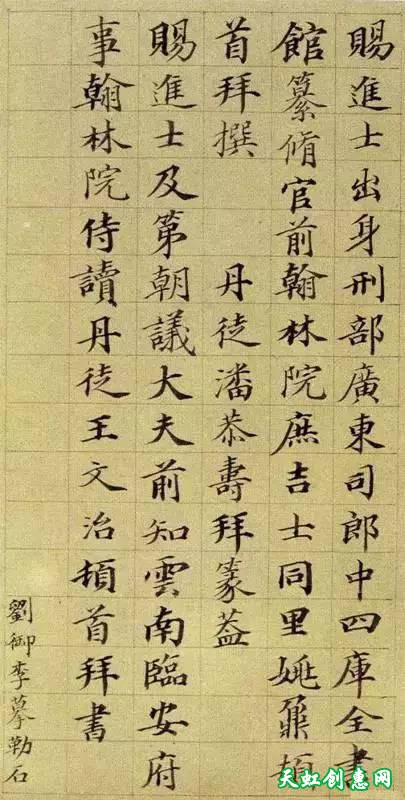 賜進士出身刑部廣東司郎中四庫全書
館纂脩官前翰林院庶吉士同里姚鼐頓
首拜撰　丹徒潘恭壽拜篆蓋
賜進士及第朝議大夫前知雲南臨安府
事翰林院侍讀丹徒王文治頓首拜書
劉御李摹勒石
天虹创惠网